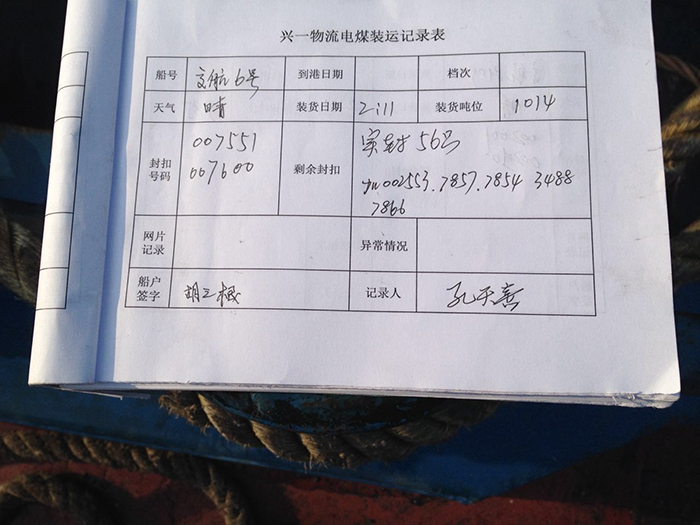 兴一物流电煤装运记录表
船号 交航6号 到港日期 档次
天气 晴 装货日期 2:11 装货吨位 1014
封扣号码 007551 007600 剩余封扣 实封56只
002553.7857.7854 3488
7866
网片记录 异常情况
船户签字 胡三根 记录人 孔天喜